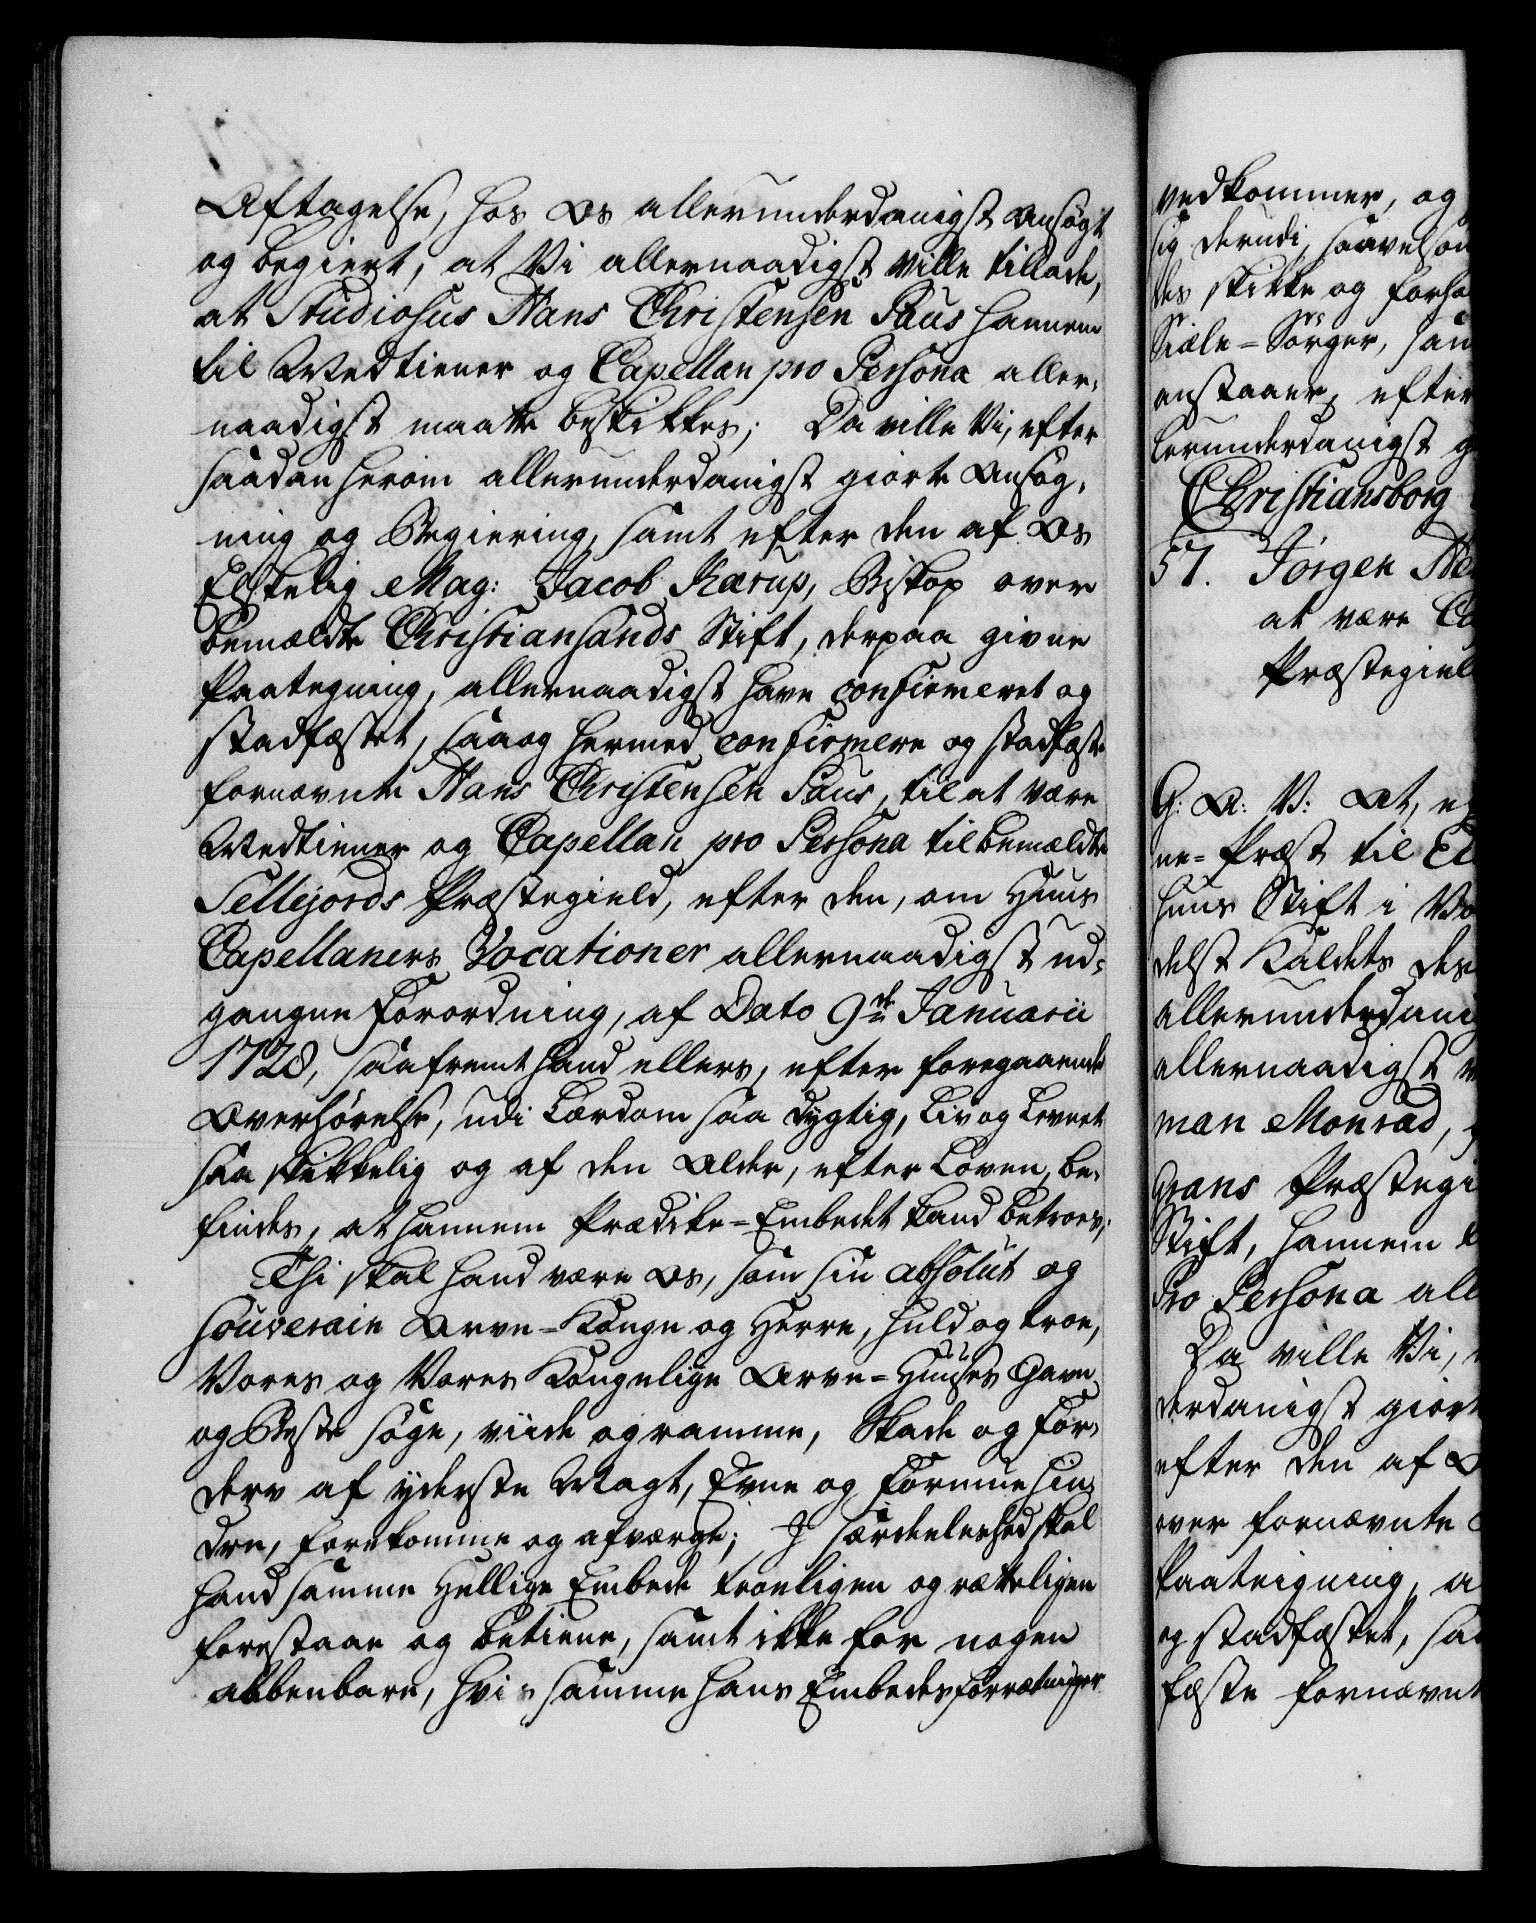 Aftagelse, hos Os allerunderdanigst Ansøgt
og begiert, at Vi allernaadigst ville tillade,
at Studiosus Hans Christensen Paus hannem
til Medtiener og Capellan pro Persona aller-
naadigst maatte beskikkes; Da ville Vi, efter
saadan herom allerunderdanigst giorte Ansøg-
ning og Begiering, samt efter den af Os
Elskelig Mag: Jacob Kærup, Biskop over
bemældte Christiansands Stift, derpaa givne
Paategning, allernaadigst have confirmeret og
stadfæstet, saa og hermed confirmere og stadfæste
fornævnte Hans Christensen Paus, til at være
Medtiener og Capellan pro Persona til bemældte
Sellejords Præstegield, efter den, om Huus
Capellaners Vocationer allernaadigst ud-
gangne Forordning, af Dato 9de Januarii
1728, saafremt hand ellers, efter foregaaende
Overhørelse, udi Lærdom saa dygtig, Liv og Levnet
saa skikkelig og af den Alder, efter Loven, be-
findes, at hannem Prædike-Embedet kand betroes;
Thi skal hand være Os, som sin absolut og
souverain Arve-Konge og Herre, huld og troe,
Vores og Vores Kongelige Arve-Huuses Gavn
og Beste søge, viide og ramme, Skade og For-
derv af yderste Magt, Evne og Formue hin-
dre, forekomme og afværge; I særdeeleshed skal
hand samme Hellige Embede troeligen og rætteligen
forestaae og betiene, samt ikke for nogen
aabenbare, hvis samme hans Embedes forrætninger
vedkommer, og
sig derudi, saavelsom
des skikke og forho
Siæle-Sørger, saa
anstaaer, efter
lerunderdanigst g
Christiansborg
57. Jörgen He
at være Ca
Præstegiel
G: A: V: At, e
ne-Præst til Ei
huus Stift i Vo
delst Kaldets
allerunderdani
allernaadigst
man Monrad,
Grans Præstegi
Stift, hannem
Pro Persona all
Da ville Vi,
derdanigst giort
efter den af O
over fornævnte
Paateigning, a
og stadfæstet, saa
fæste fornævnt